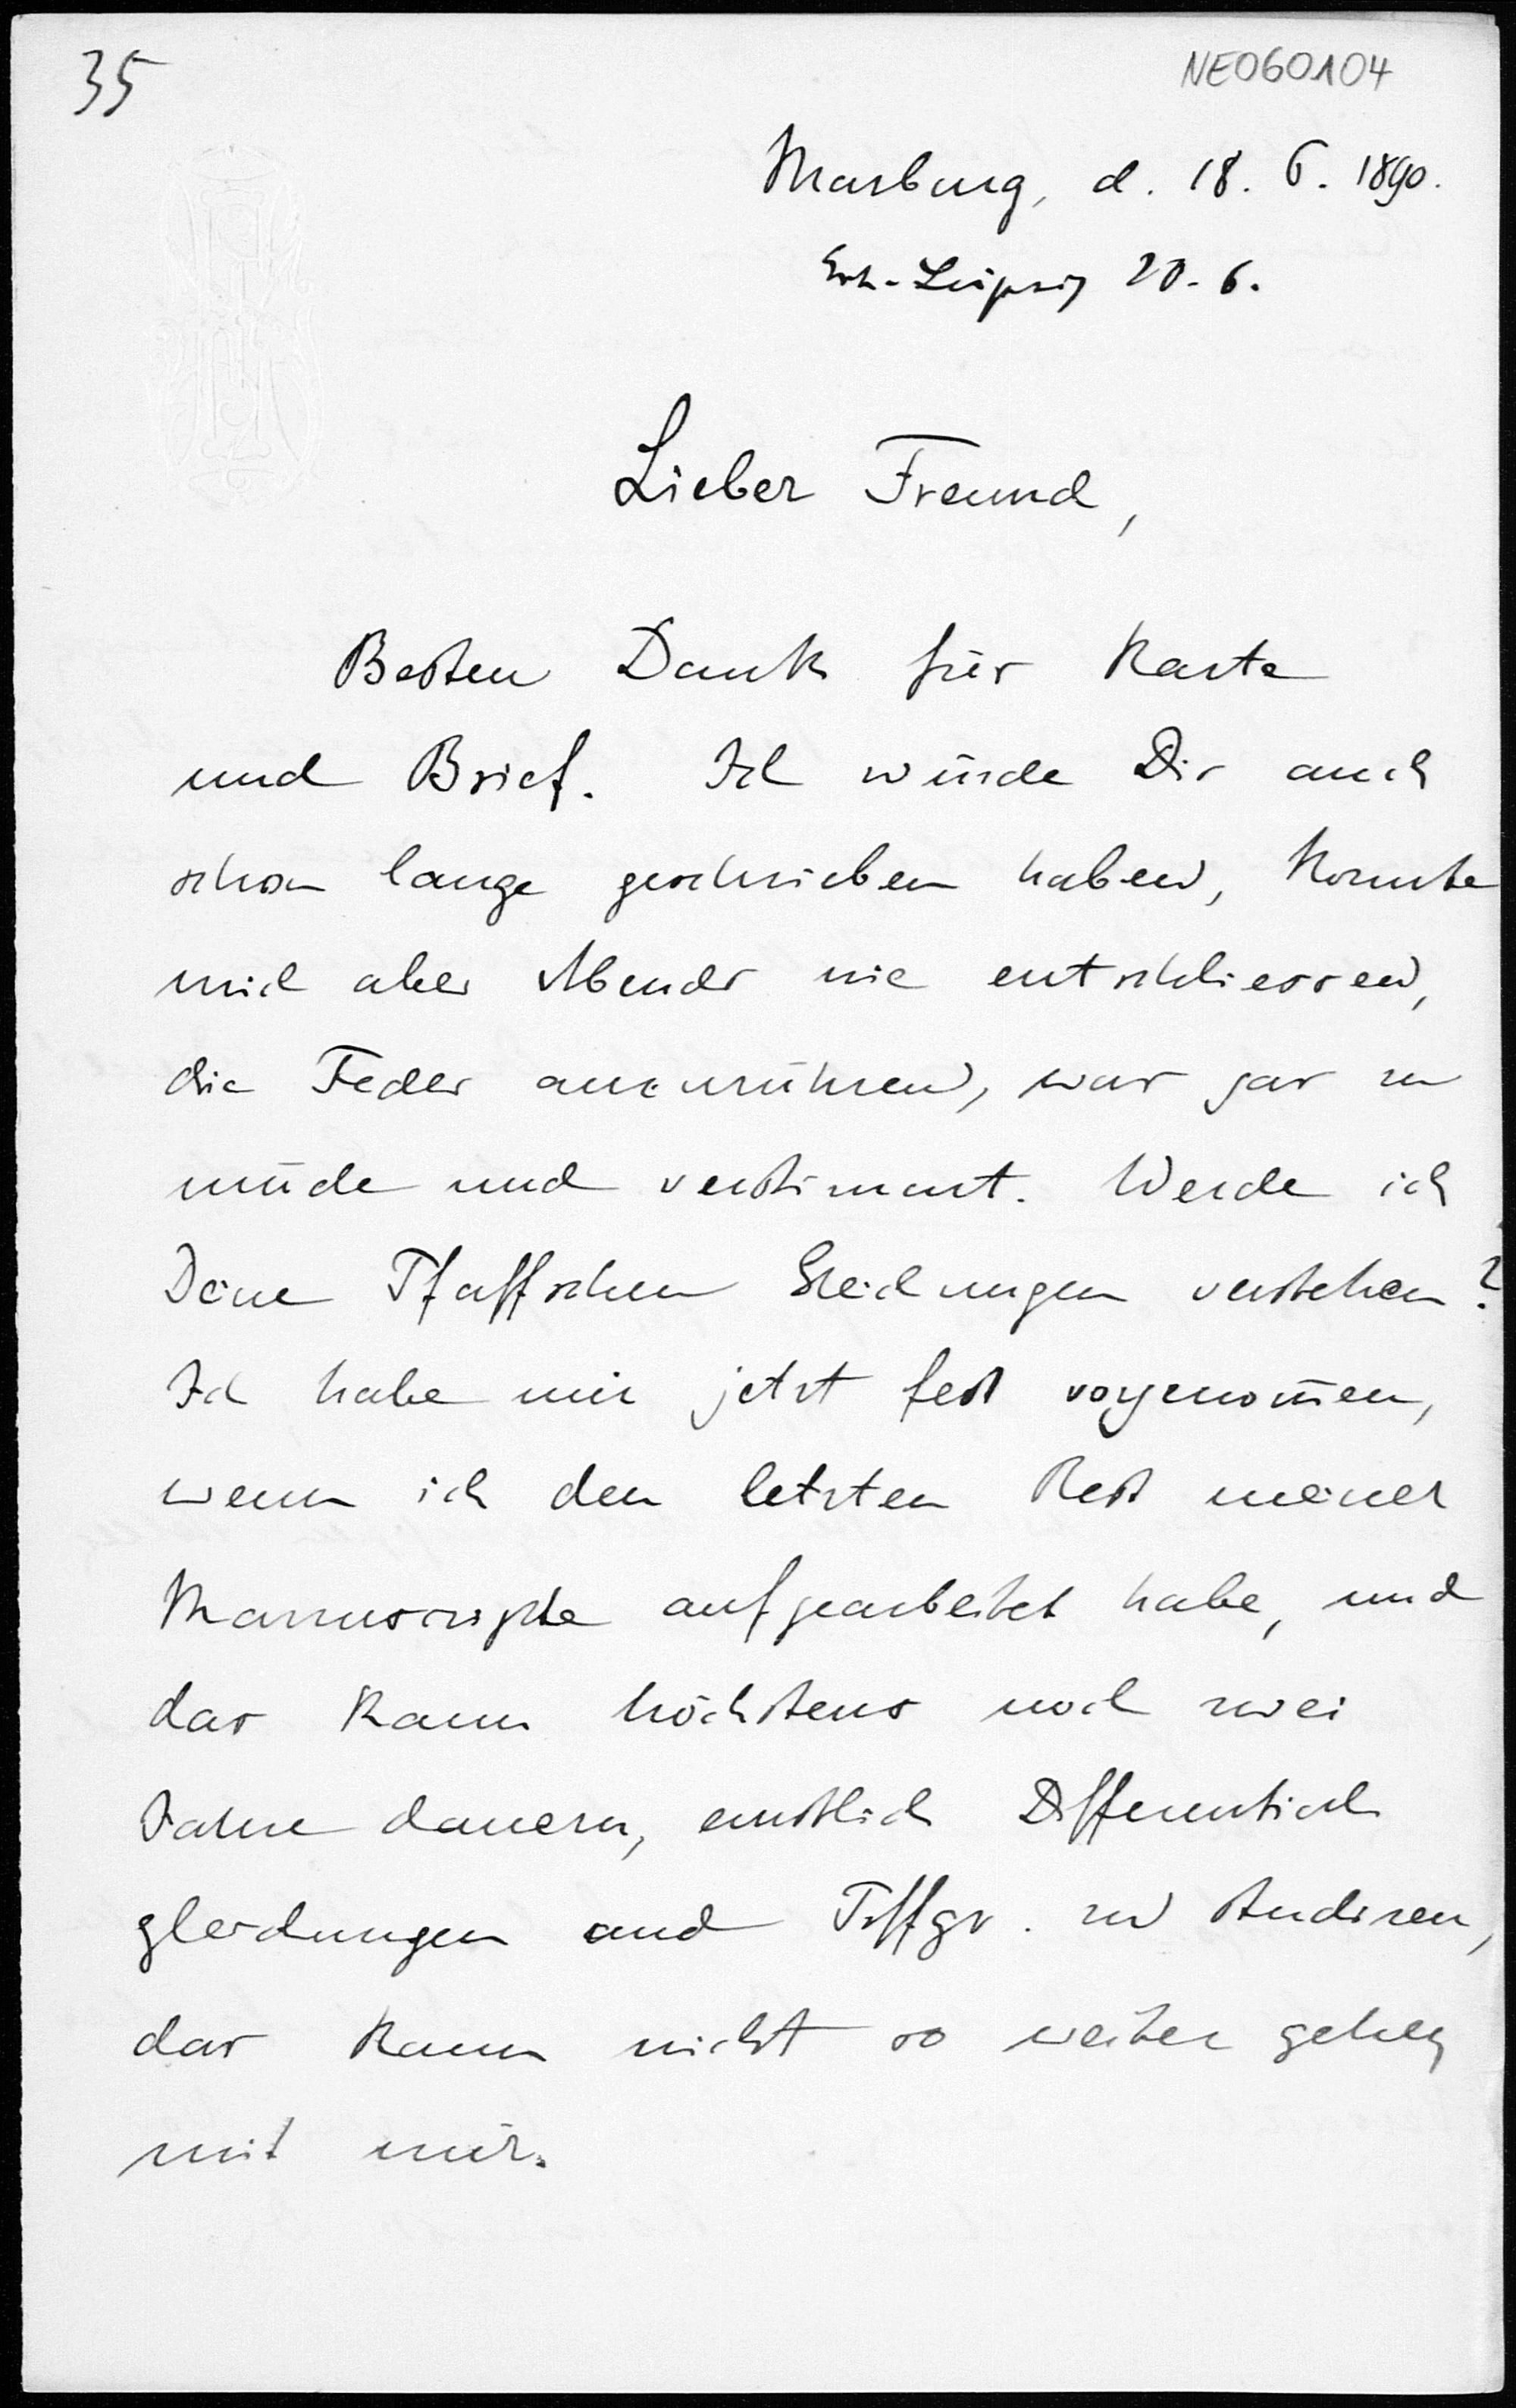 35
NE060104
Marburg, d. 18. 6. 1890.
Erh. Leipzig 20.6.
Lieber Freund,
Besten Dank für Karte
und Brief. Ich würde Dir auch
schon lange geschrieben haben, konnte
mich aber Abends nie entschliessen,
die Feder anzurühren, war gar zu
müde und verstimmt. Werde ich
Deine Pfaffschen Gleichungen verstehen?
Ich habe mir jetzt fest vorgenom̄en,
wenn ich den letzten Rest meiner
Manuscripte aufgearbeitet habe, und
das kann höchstens noch zwei
Jahre dauern, ernstlich Differential
gleichungen und Trffgr. zu studiren,
das kann nicht so weiter gehen
mit mir.